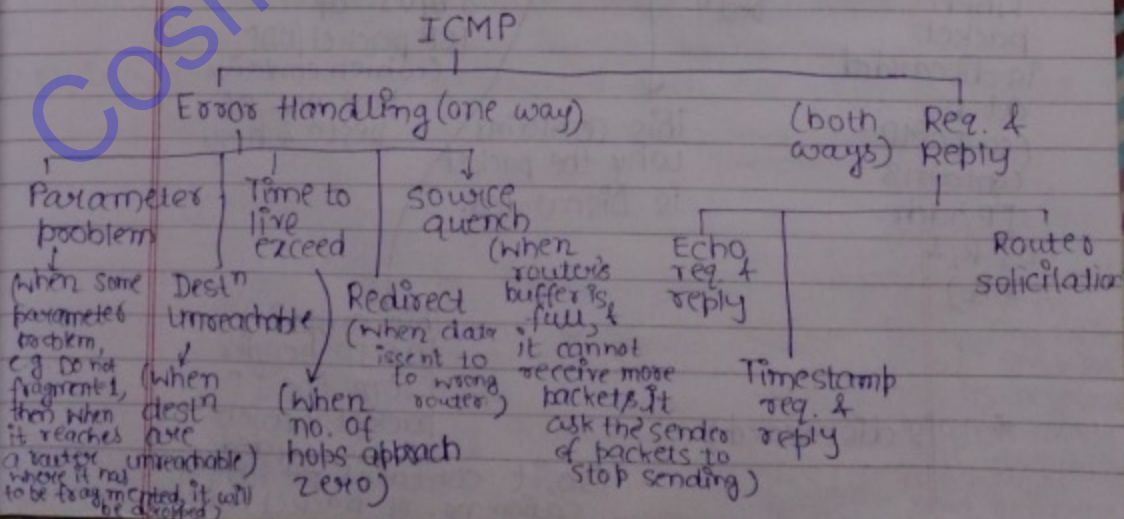 Cosm
ICMP
Error Handling (one way)
(both ways) Req. & Reply
Parameter problem
(when some
parameter
problem,
e.g Do not
fragment 1,
then when
it reaches
a router
where it has
to be fragmented, it will
be dropped)
Destⁿ
unreachable
(when
destⁿ
are
unreachable)
Time to
live
exceed
(when
no. of
hops approach
zero)
Redirect
(when data
is sent to
to wrong
router)
source
quench
(when
router's
buffer is
full, &
it cannot
receive more
packets, it
ask the sender
of packets to
stop sending)
Echo
req. &
reply
Timestamp
req. &
reply
Router
solicilation